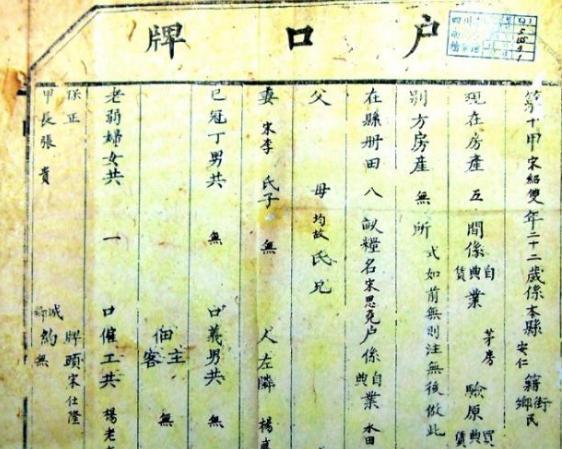 户口牌
第十甲宋紹雙年二十二歲係本縣安仁籍街鄉民
現在房產五間係自典賃業茅房驗原買典賃
別方房產無所式如前無則注無後倣此
在縣册田八畝糧名宋思堯户係自典業水田
父母均故氏兄
妻宋李氏子無人左隣楊
已冠丁男共無口義男共無
佃客主無
老弱婦女共一口僱工共楊老
保正牌頭宋仕隆
甲長張貴城鄉約無